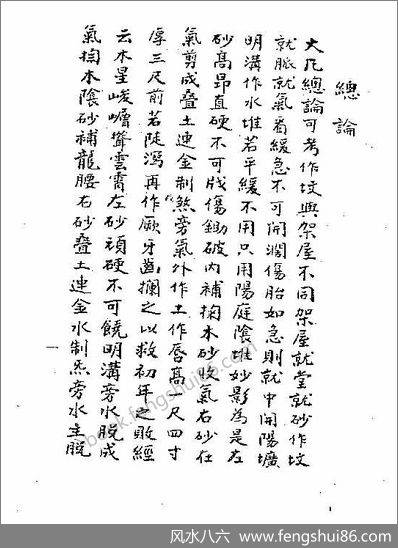 總論
大凡總論可考作坟與架屋不同架屋就堂就砂作坟
就脈就氣看緩急不可開濶傷胎如急則就中開陽壙
明溝作水堆若平緩不用只用陽庭陰堆妙影為是左
砂高昂直硬不可戕傷鋤破內補掏木砂收氣右砂在
氣剪成叠土連金制煞旁氣外作土作唇高一尺四寸
厚三尺前若陡瀉再作厥牙齒攔之以救初年之敗經
云木星峻嶒聳雲霄左砂頑硬不可饒明溝旁水脱成
氣掏木陰砂補龍腰右砂叠土連金水制炁旁水主脱
一
book.fengshui86.com
风水八六 www.fengshui86.com